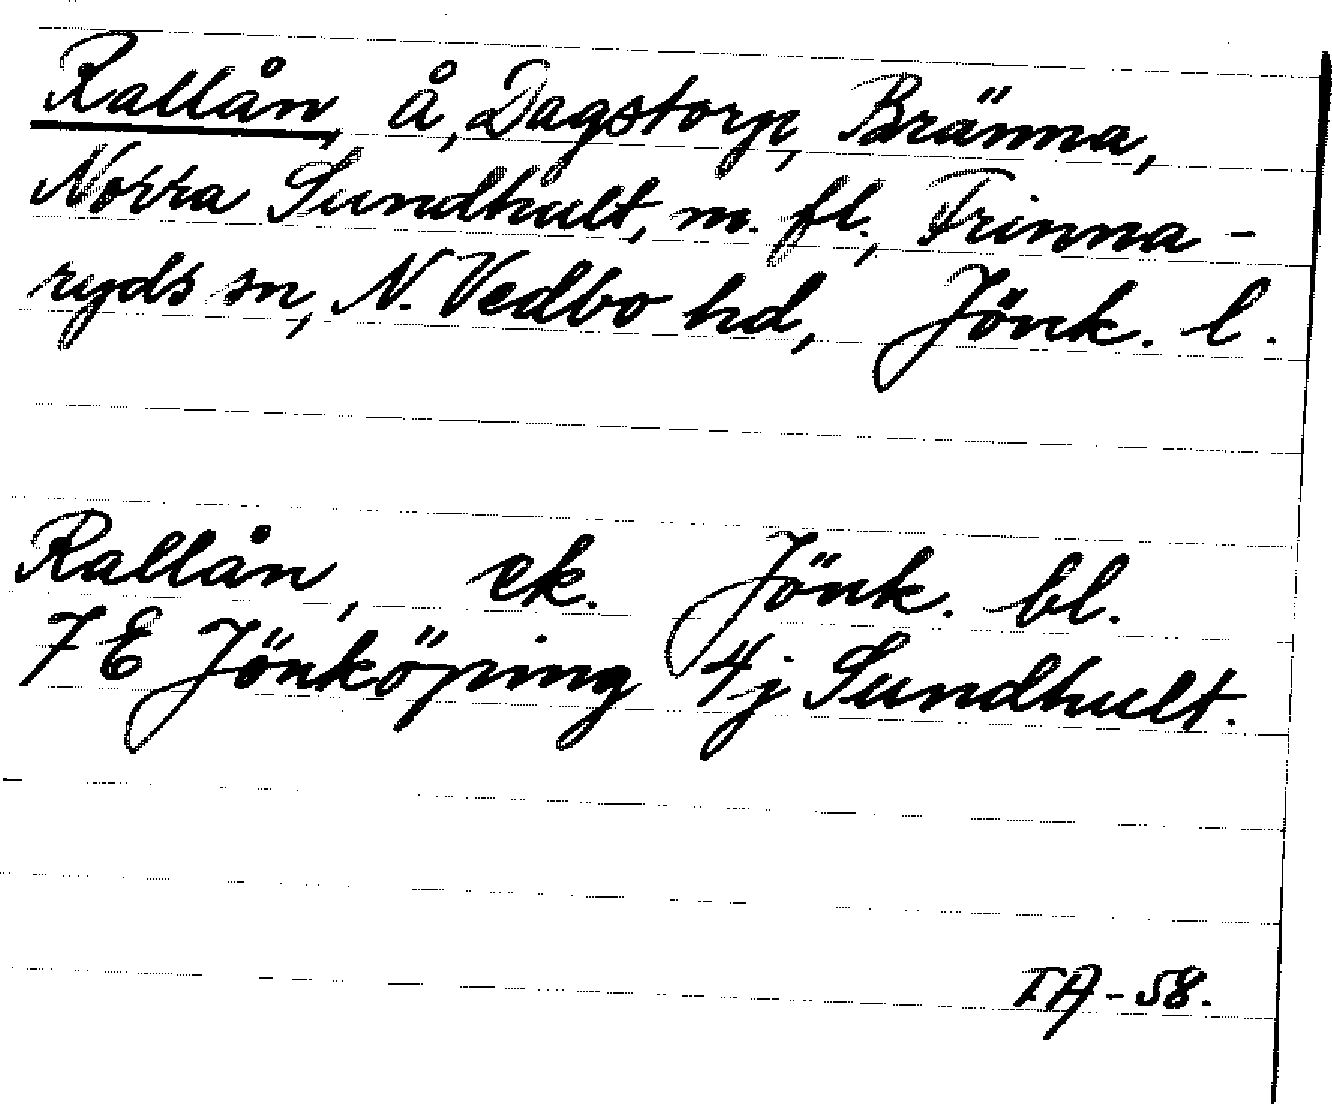 Rallån, å, Dagstorp, Bränna,
Norra Sundhult, m. fl., Frinna-
ryds sn, N. Vedbo hd, Jönk. l.
Rallån, ek. Jönk. bl.
7 E Jönköping 4j Sundhult.
TA-58.